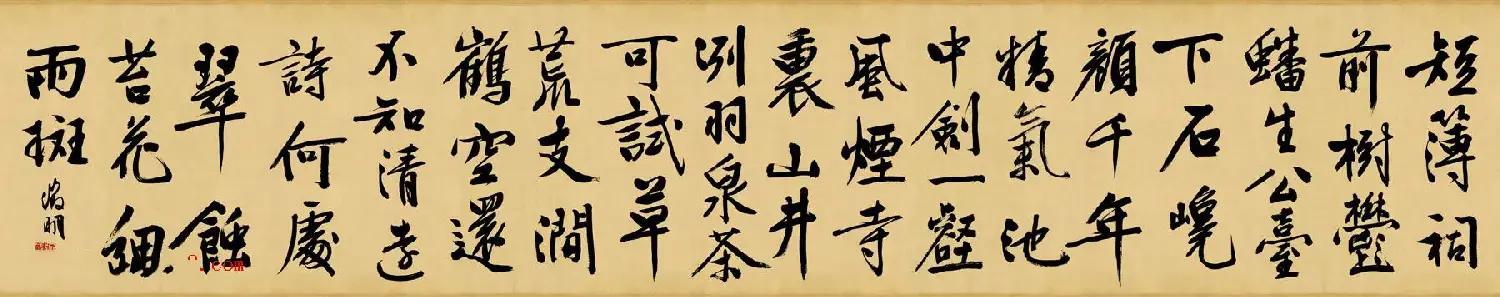 短簿祠
前樹鬱
蟠生公臺
下石
顏千年
精氣池
中劍一壑
風煙寺
裏山井
冽羽泉茶
可試草
荒支澗
鶴空還
不知清遠
詩何處
翠蝕
苔花細
雨斑
徵明
.com